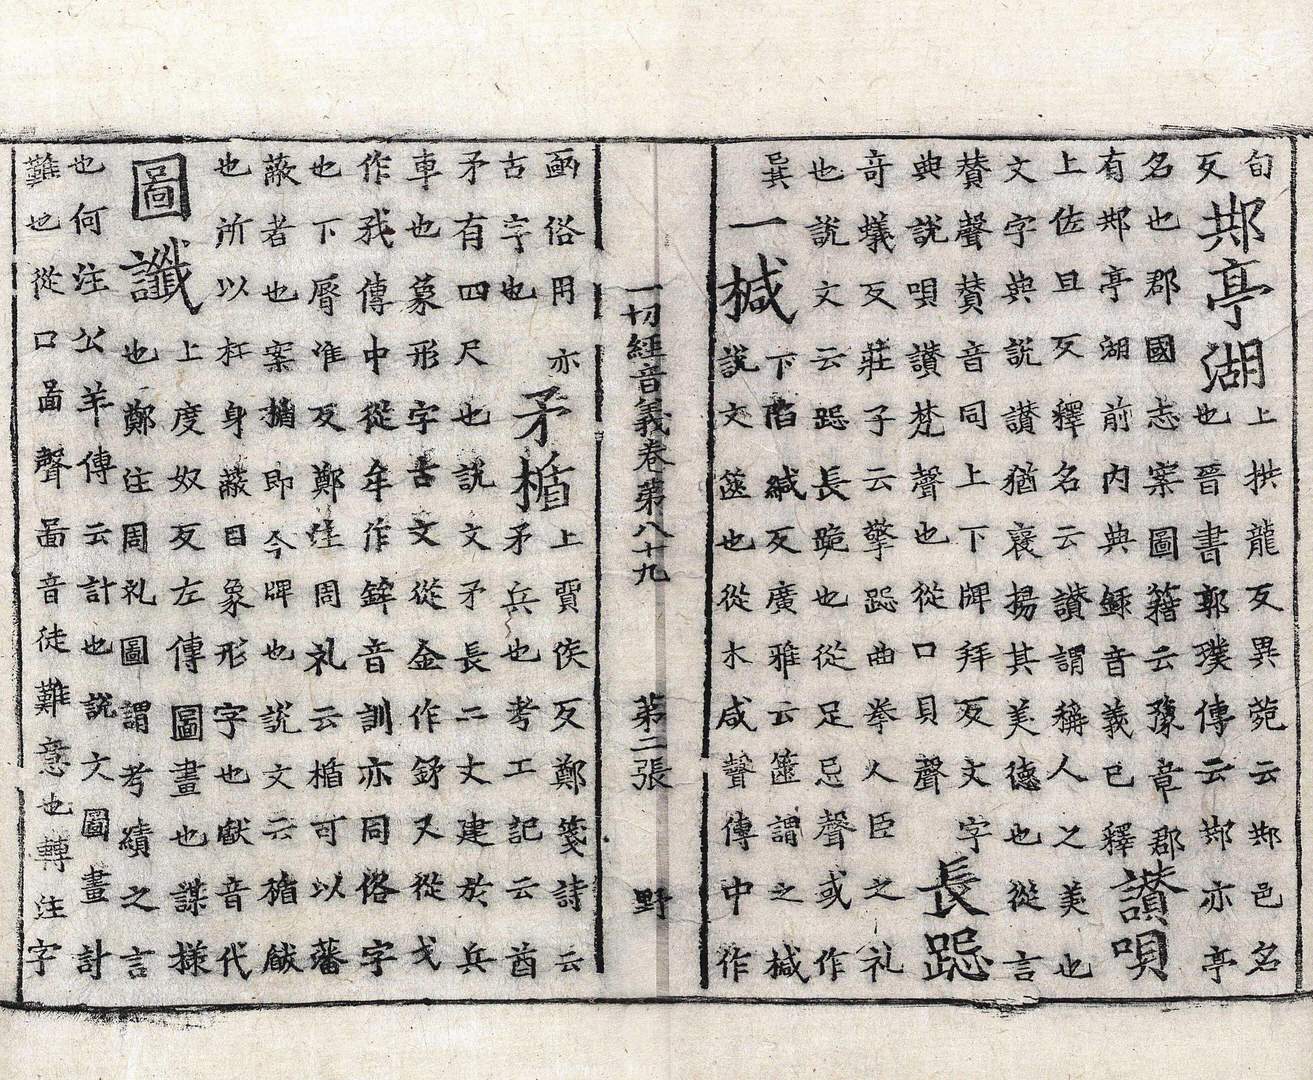 旬
反
䢼亭湖
上拱龍反異菀云䢼邑名
也晉書郭璞傳云䢼亦亭
名也郡國志案圖籍云豫章郡
有䢼亭湖前內典録音義已釋
讃唄
上佐旦反釋名云讃謂稱人之美也
文字典說讃猶襃揚其美德也從言
賛聲賛音同上下牌拜反文字
典說唄讃梵聲也從口貝聲
長跽
竒蟻反莊子云擎跽曲拳人臣之礼
也說文云跽長跪也從足忌聲或作
㠱
一椷
下陷緘反廣雅云篋謂之椷
說文篋也從木咸聲傳中作
一切經音義卷第八十九 第二張 野
凾俗用亦
古字也
矛楯
上賈侯反鄭箋詩云
矛兵也考工記云酋
矛有四尺也說文矛長二丈建於兵
車也象形字古文從金作釨又從戈
作𢦧傳中從牟作鉾音訓亦同俗字
也下脣准反鄭注周礼云楯可以藩
蔽者也案楯即今牌也說文云楯瞂
也所以扞身蔽目象形字也瞂音代
圖讖
上度奴反左傳圖畫也謀樣
也鄭注周礼圖謂考績之言
也何注公羊傳云計也說文圖畫計
難也從口啚聲啚音徒難意也轉注字